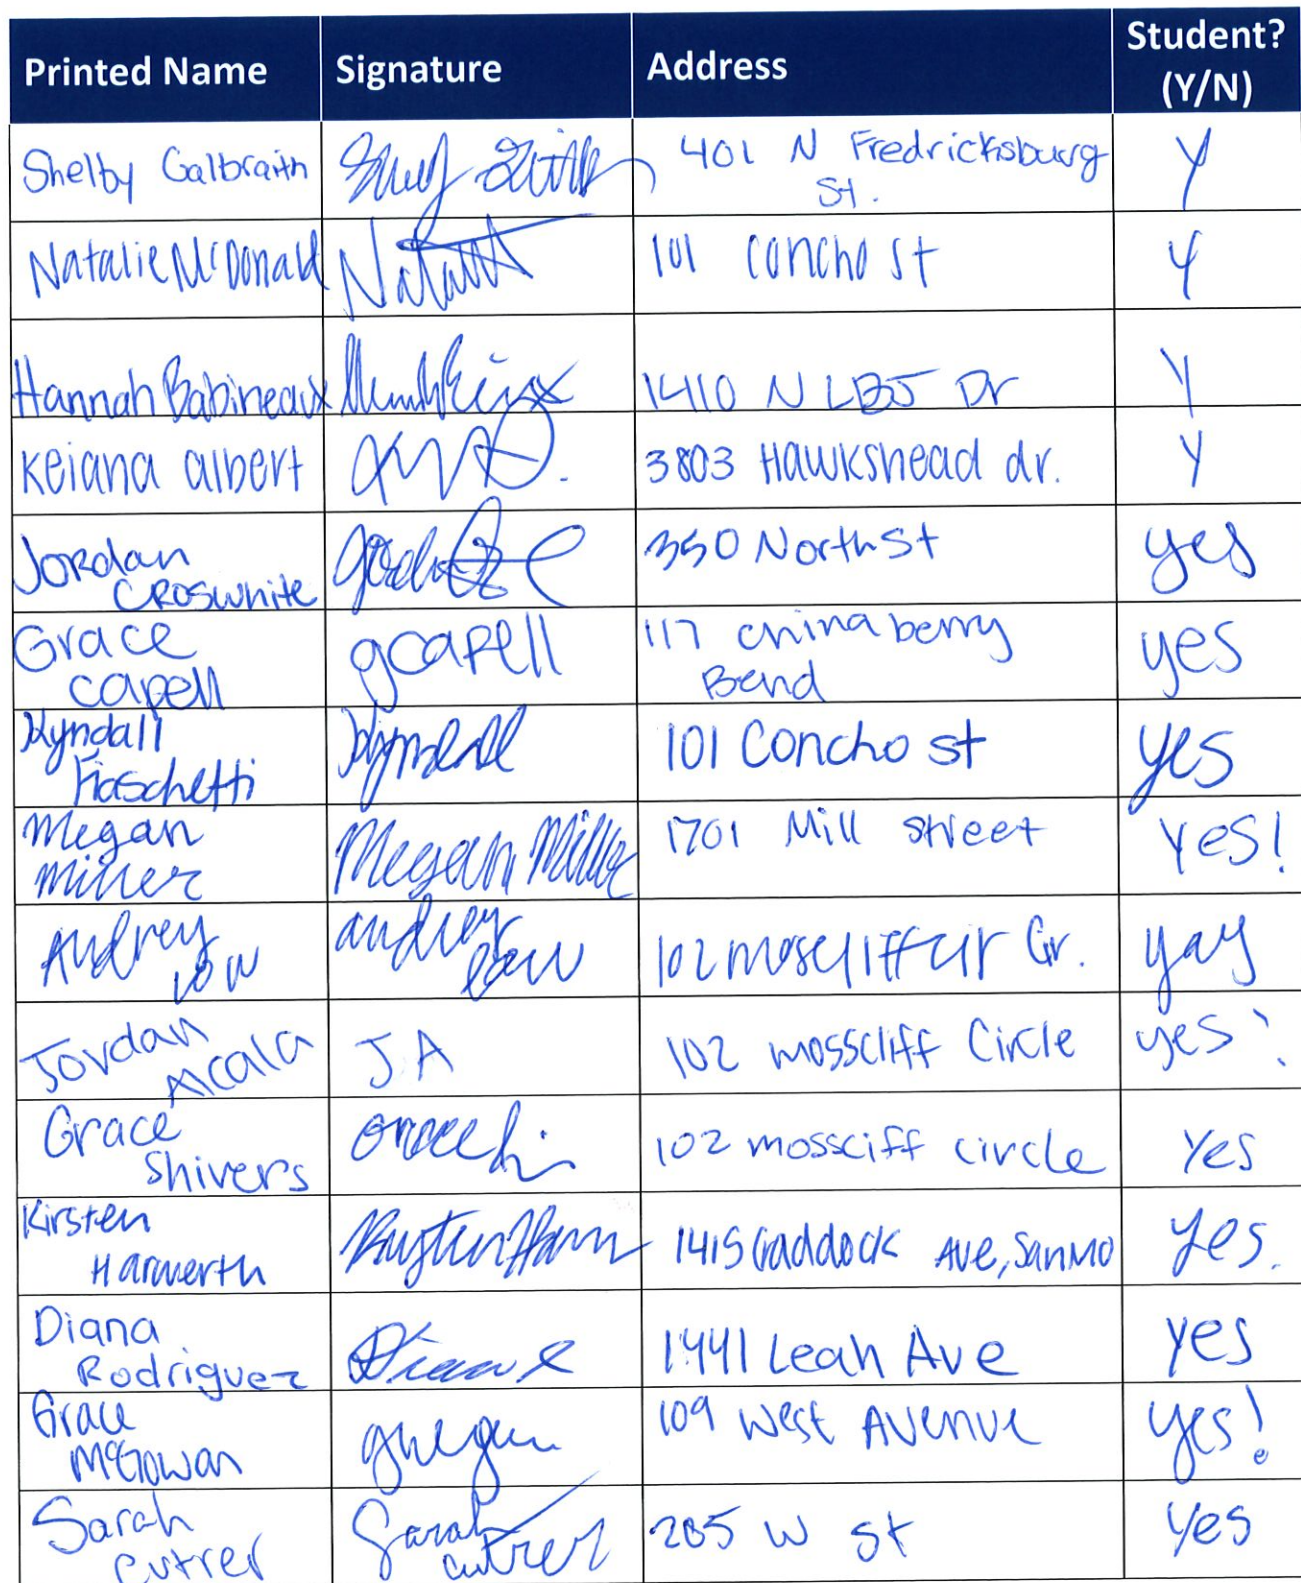 Printed Name Signature Address Student? (Y/N)
Shelby Galbraith 401 N Fredricksburg St. Y
Natalie McDonald 101 Concho St Y
Hannah Babineaux 1410 N LBJ Dr Y
Keiana albert 3803 Hawkshead dr. Y
Jordan Croswhite 350 North St yes
Grace Capell gcapell 117 chinaberry Bend yes
Kyndall Fiaschetti Kyndall 101 Concho st yes
Megan Miller Megan Miller 1701 Mill street Yes!
Audrey Low audrey low 102 Cir. yay
Jordan Alcala J A 102 mosscliff Circle yes!
Grace Shivers 102 mossciff circle Yes
Kirsten Harwerth 1415 Craddock Ave, San Mo yes.
Diana Rodriguez 1441 Leah Ave yes
Grace McGowan 109 West Avenue yes!
Sarah Cutrer Sarah Cutrer 205 W st Yes